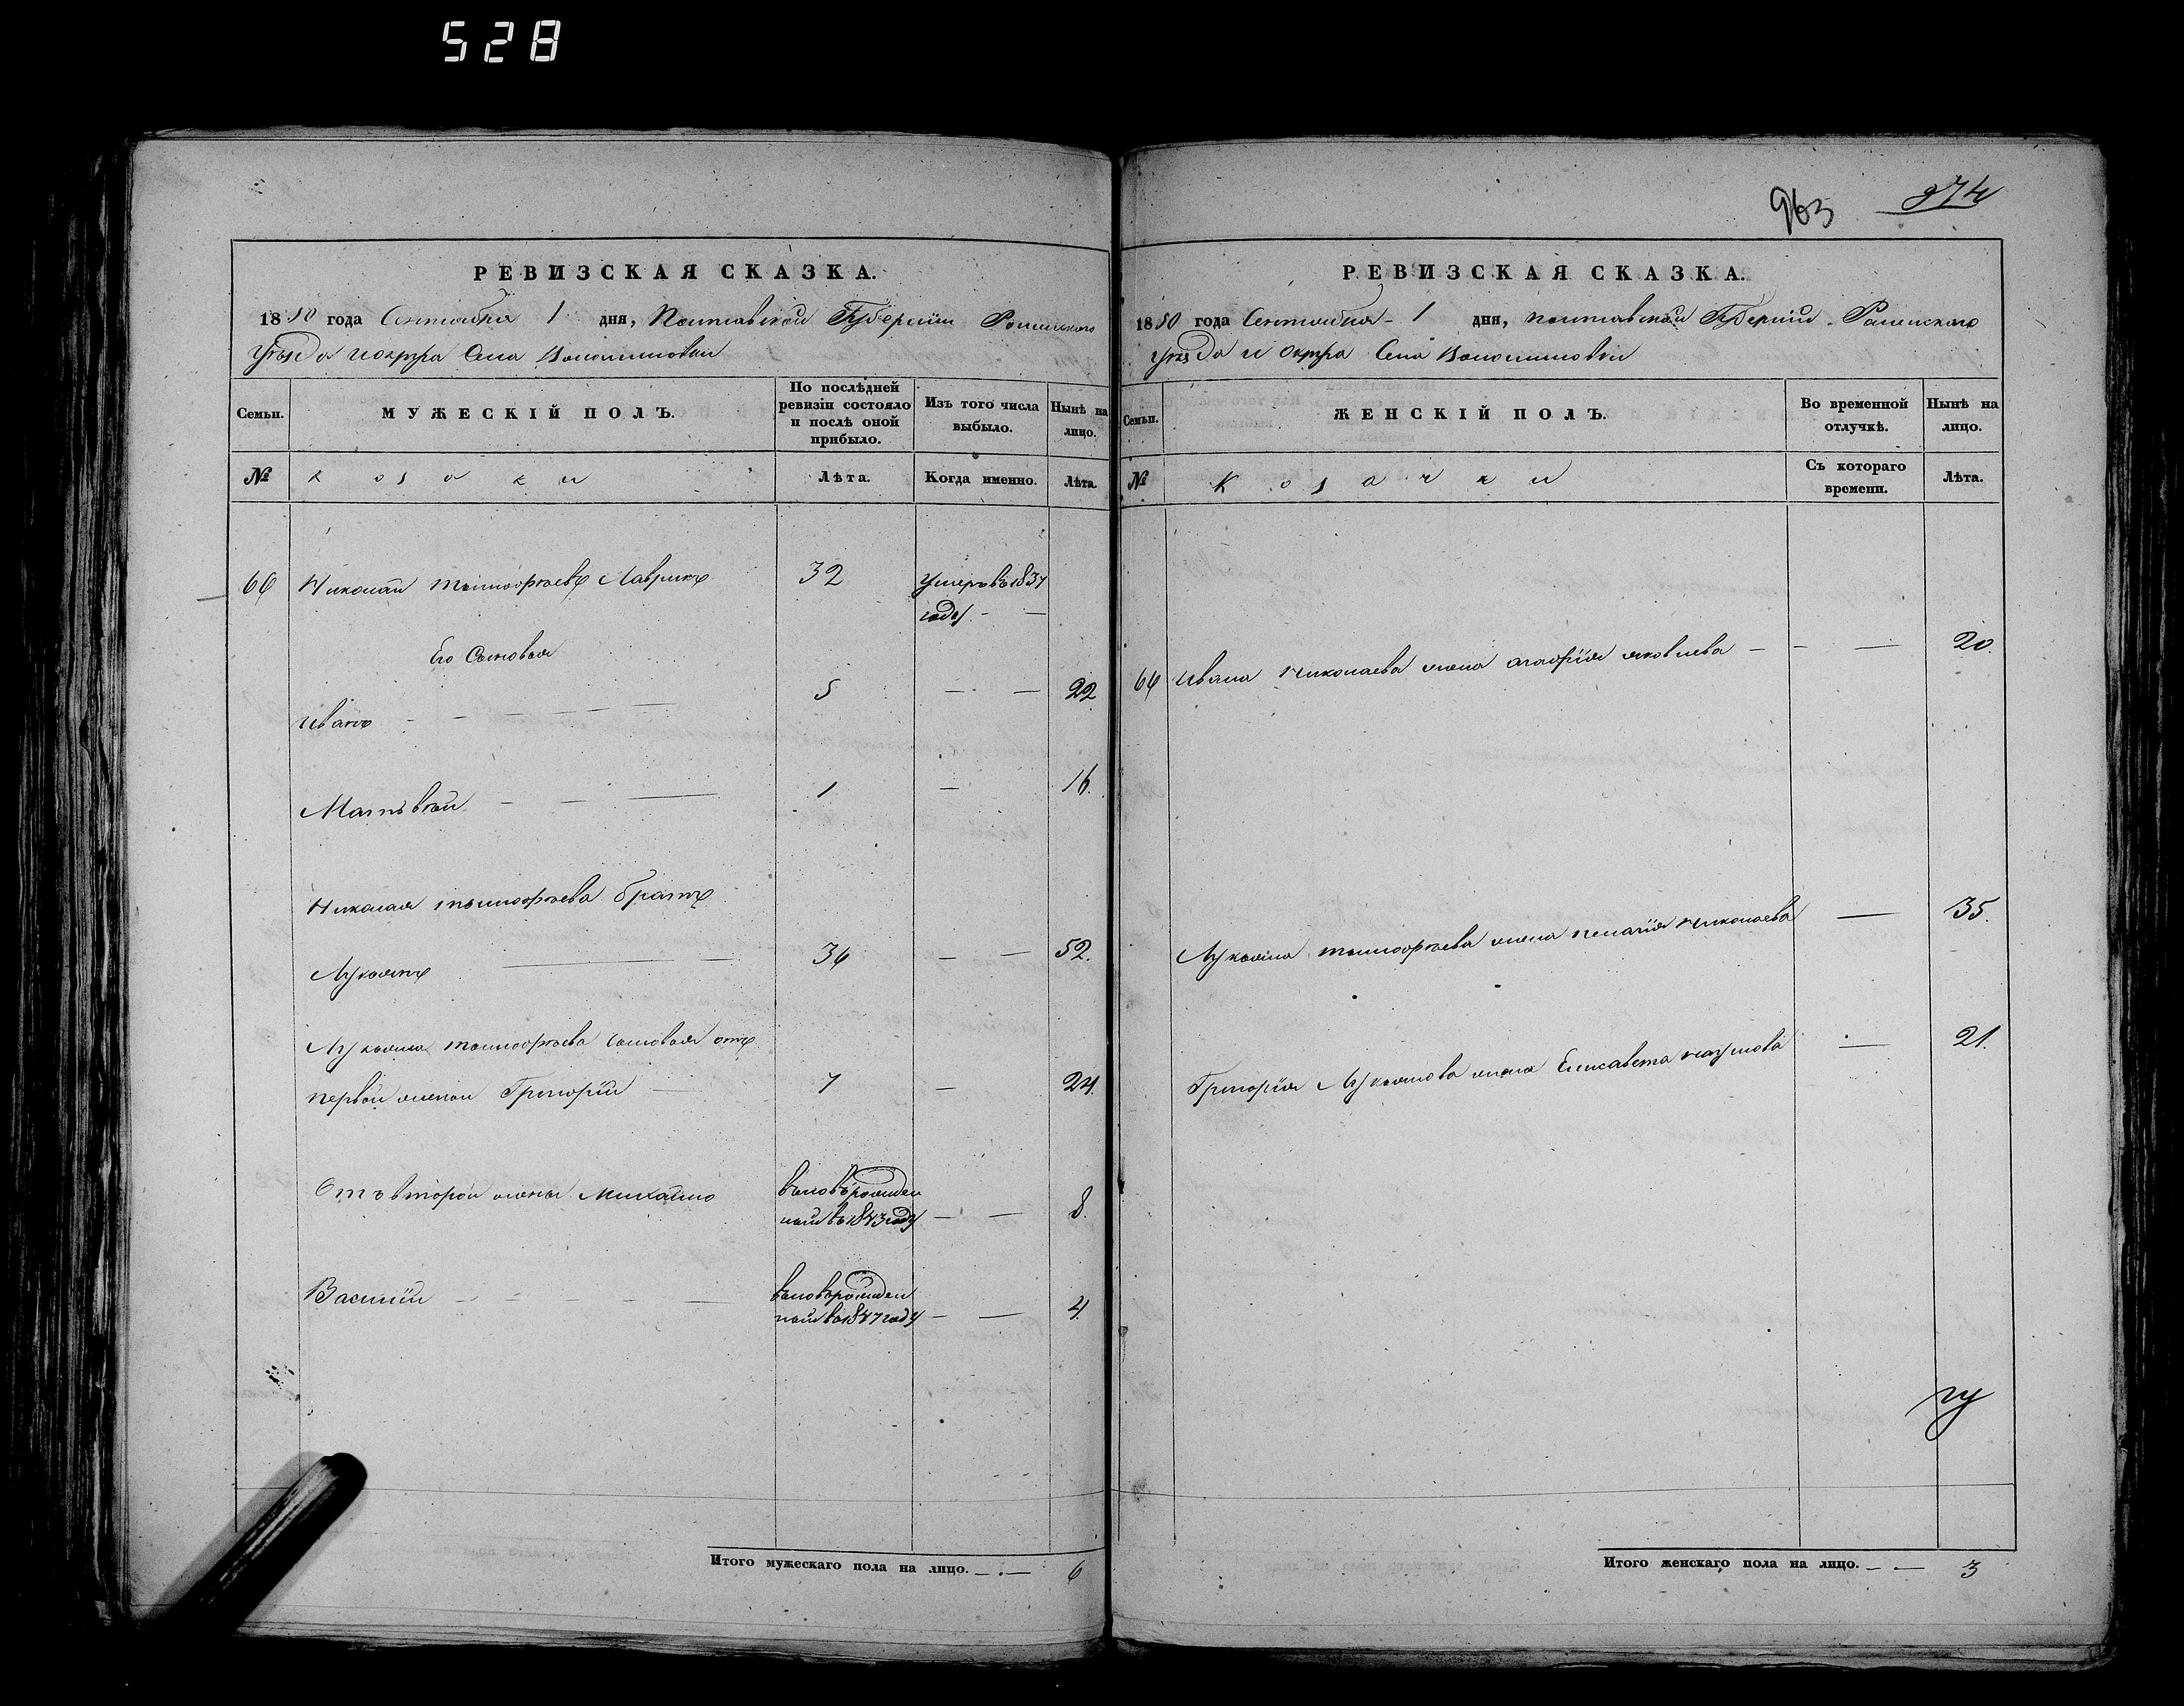 528
963 974
РЕВИЗСКАЯ СКАЗКА.
1850 года Сентября 1 дня, Полтавской Губернии Роменского
Уѣзда и округа Села
Семьи.
МУЖЕСКІЙ ПОЛЪ.
По послѣдней
ревизіи состояло
и послѣ оной
прибыло.
Изъ того числа
выбыло.
Нынѣ на
лицо.
№ Козаки Лѣта. Когда именно. Лѣта.
66 Николай Тимофѣевъ Лаврикъ 32 умеръ въ 1837
году — —
Его Сыновья
Иванъ — — — — — 5 — — 22
Матвѣй — — — 1 — 16.
Николая Тимофѣева братъ
Лукьянъ — 36 — — 52.
Лукьяна Тимофѣева сыновья отъ
первой жены Григорій — 7 — 24.
Отъ второй жены Михайло вновьрожден
ный въ 1843 году — — 8.
Василій — — — — вновьрожден
ный въ 1847 году — — 4.
Итого мужескаго пола на лицо. — — 6
РЕВИЗСКАЯ СКАЗКА.
1850 года Сентября — 1 дня, Полтавской Губерніи Роменскаго
Уѣзда и Округа Села
Семьи.
ЖЕНСКІЙ ПОЛЪ.
Во временной
отлучкѣ.
Нынѣ на
лицо.
№ Козачки
Съ котораго
времени.
Лѣта.
66 Ивана Николаева жена Агафія Яковлева — — — 20.
Лукьяна Тимофѣева жена Пелагія Николаева — 35.
Григорія Лукьянова жена Елисавета Наумова — 21.
Итого женскаго пола на лицо. — — 3